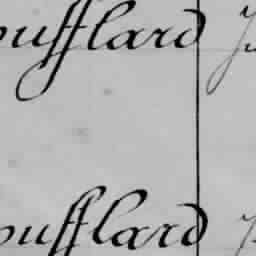 oufflard
oufflard